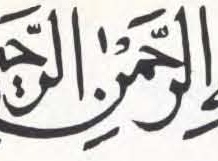 الرَّحْمَنِ الرَّحِي